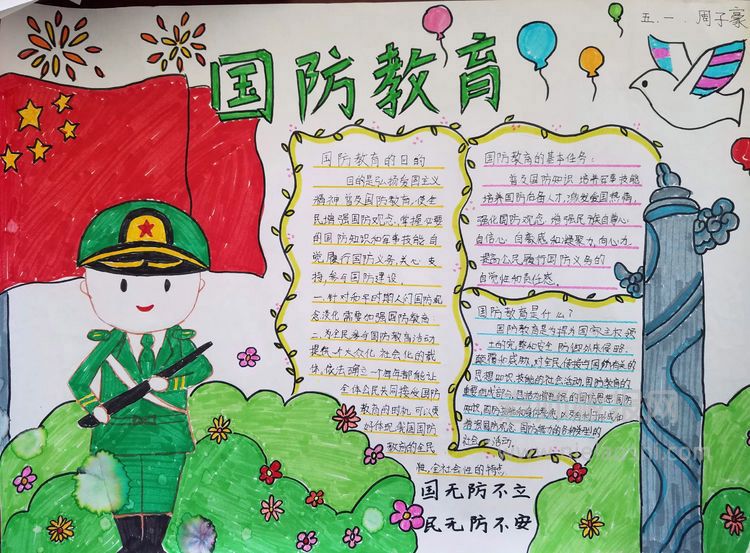 五.一.周子豪
国防教育
国防教育的目的
目的是弘扬爱国主义
精神 普及国防教育,使全
民增强国防观念,掌握必要
的国防知识和军事技能,自
觉履行国防义务,关心 支
持,参与国防建设。
一.针对和平时期人们国防观
念淡化,需要加强国防教育
二.为全民参与国防教育活动
提供一个大众化 社会化的载
体,依法确立一个每年都能让
全体公民共同接受国防
教育的时机,可以更
好体现我国国防
教育的全民
性,全社会性的特点
国防教育的基本任务:
普及国防知识 培养军事技能
培养国防后备人才,激发爱国热情,
强化国防观念,增强民族自尊心
自信心 自豪感和凝聚力,向心力,
提高公民履行国防义务的
自觉性和责任感。
国防教育是什么?
国防教育是为捍卫国家主权、领
土的完整和安全,防御外来侵略、
颠覆和威胁,对全民传授与国防有关的
思想 知识 技能的社会活动,国防教育的
国防观念,国防能力的各种类型的
社会活动。
国无防不立
民无防不安